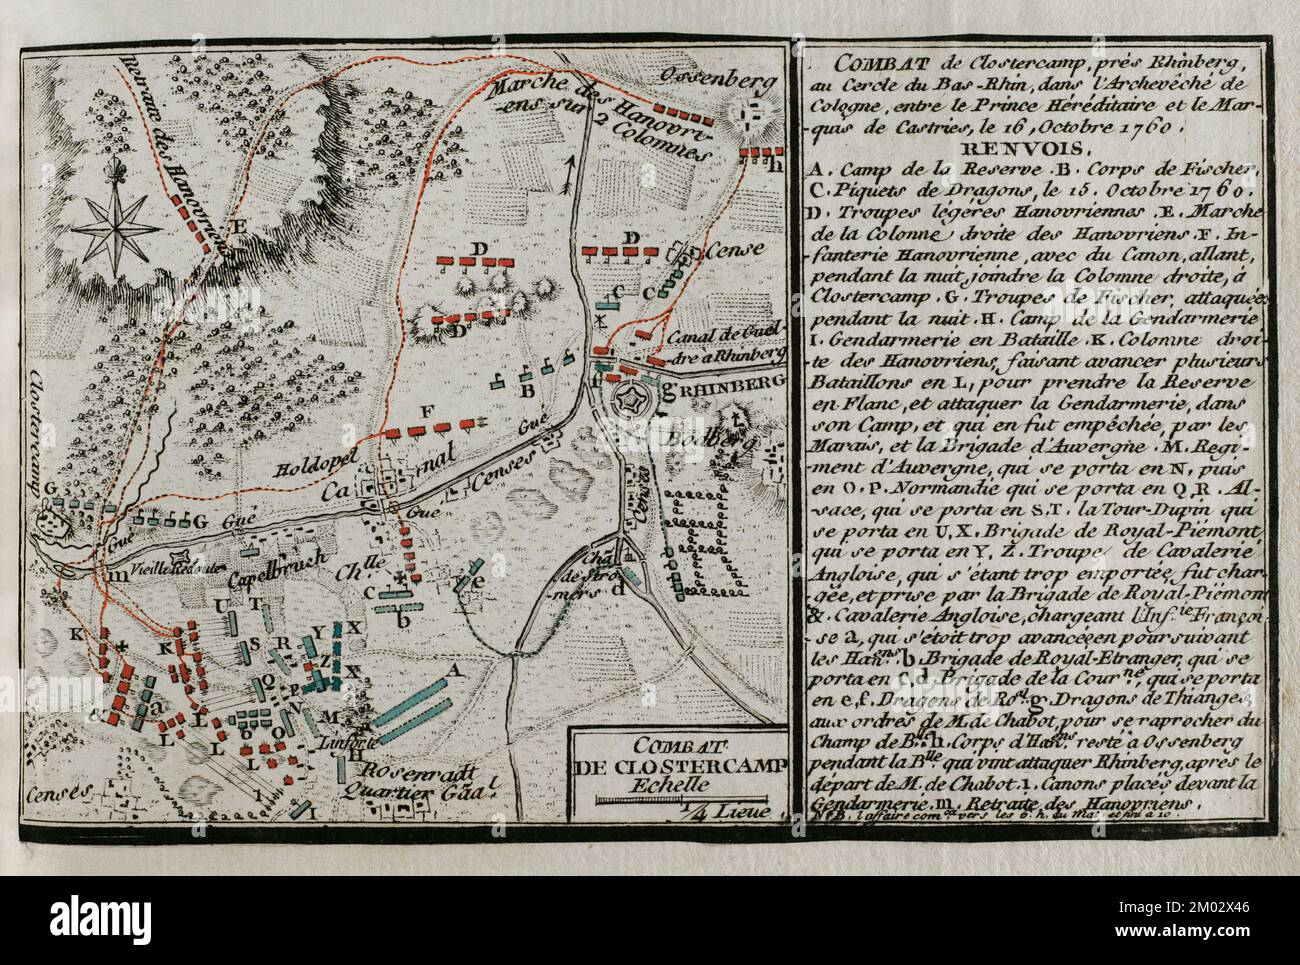 Retraite des Hanovriens
Marche des Hanovri-
ens sur 2 Colomnes
Ossenberg
h
E
D
D
Cense
D
C
C
Canal de Guel-
dre a Rhinberg
B
f
g
RHINBERG
Clostercamp
F
Gué
Bodberg
Holdopel
Ca
nal
Censes
G
G
Gué
Gué
Gué
m
Vieille Redoute
Capelbruch
Ch.lle
e
Châ.
de Stro-
mers
d
C
b
U
T
K
K
S
R
Y
X
Z
A
Q
X
P
&
a
L
N
M
L
b
O
L
L
Linforte
H
Rosenradt
Quartier Gãal.
Censés
1
I
COMBAT
DE CLOSTERCAMP
Echelle
1/4 Lieue
COMBAT de Clostercamp, prés Rhinberg,
au Cercle du Bas-Rhin, dans l'Archevêché de
Cologne, entre le Prince Héréditaire et le Mar-
quis de Castries, le 16, Octobre 1760.
RENVOIS.
A. Camp de la Reserve. B. Corps de Fischer,
C. Piquets de Dragons, le 15. Octobre 1760.
D. Troupes légéres Hanovriennes. E. Marche
de la Colonne droite des Hanovriens. F. In-
fanterie Hanovrienne, avec du Canon, allant,
pendant la nuit, joindre la Colomne droite, à
Clostercamp. G. Troupes de Fischer, attaquées
pendant la nuit. H. Camp de la Gendarmerie
I. Gendarmerie en Bataille. K. Colomne droi-
te des Hanovriens, faisant avancer plusieurs
Bataillons en L, pour prendre la Reserve
en Flanc, et attaquer la Gendarmerie, dans
son Camp, et qui en fut empêchée, par les
Marais, et la Brigade d'Auvergne. M. Regi-
ment d'Auvergne, qui se porta en N, puis
en O. P. Normandie qui se porta en Q, R. Al-
sace, qui se porta en S. T. la Tour-Dupin qui
se porta en U, X. Brigade de Royal-Piémont,
qui se porta en Y, Z. Troupe de Cavalerie
Angloise, qui s'étant trop emportée, fut char-
gée, et prise par la Brigade de Royal-Piémont
&. Cavalerie Angloise, chargeant l'Inf.rie Françoi-
se a, qui s'étoit trop avancée en poursuivant
les Han.ens b. Brigade de Royal-Etranger, qui se
porta en C, d. Brigade de la Cour.ne, qui se porta
en e, f. Dragons de Ro.al g. Dragons de Thianges,
aux ordres de M. de Chabot, pour se raprocher du
Champ de B.lle h. Corps d'Han.ens resté a Ossenberg
pendant la B.lle qui vint attaquer Rhinberg, après le
départ de M. de Chabot. 1. Canons placés devant la
Gendarmerie. m. Retraite des Hanovriens.
N.B. l'affaire com.ca vers les 5. h. du Mat. et fini a 10.
alamy
Image ID: 2M02X46
www.alamy.com